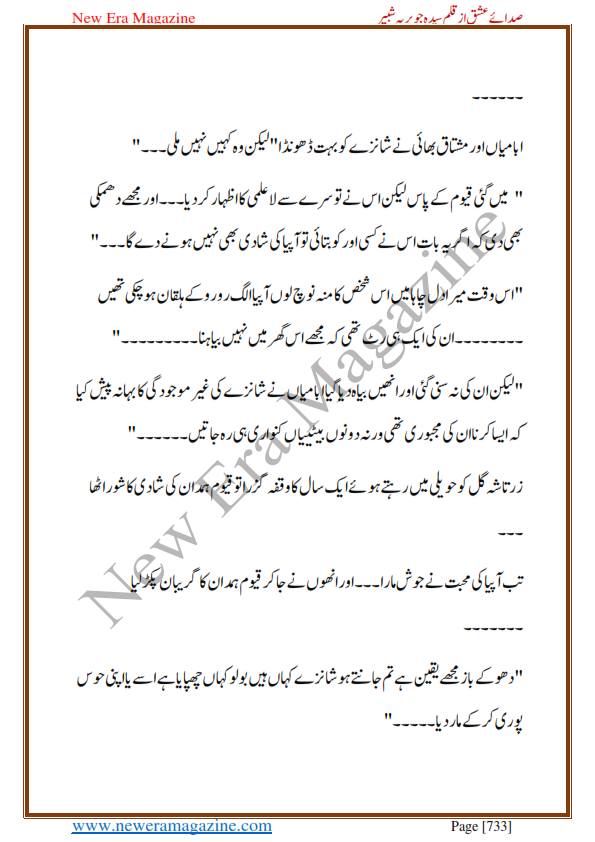 New Era Magazine صدائے عشق از قلم سیدہ جویریہ شبیر
------
ابا میاں اور مشتاق بھائی نے شانزے کو بہت ڈھونڈا "لیکن وہ کہیں نہیں ملی ---"
" میں گئی قیوم کے پاس لیکن اس نے تو سرے سے لاعلمی کا اظہار کر دیا --- اور مجھے دھمکی
بھی دی کہ اگر یہ بات اس نے کسی اور کو بتائی تو آپیا کی شادی بھی نہیں ہونے دے گا ---"
"اس وقت میرا دل چاہا میں اس شخص کا منہ نوچ لوں آپیا الگ رو رو کے ہلقان ہو چکی تھیں
-------- ان کی ایک ہی رٹ تھی کہ مجھے اس گھر میں نہیں بیاہنا ---------"
"لیکن ان کی نہ سنی گئی اور انھیں بیاہ دیا گیا ابا میاں نے شانزے کی غیر موجودگی کا بہانہ پیش کیا
کہ ایسا کرنا ان کی مجبوری تھی ورنہ دونوں بیٹییاں کنواری ہی رہ جاتیں ------"
زرتاشہ گل کو حویلی میں رہتے ہوئے ایک سال کا وقفہ گزرا تو قیوم ہمدان کی شادی کا شور اٹھا
---
تب آپیا کی محبت نے جوش مارا --- اور انھوں نے جا کر قیوم ہمدان کا گریبان پکڑ لیا
-------
"دھوکے باز مجھے یقین ہے تم جانتے ہو شانزے کہاں ہیں بولو کہاں چھپایا ہے اسے یا اپنی حوس
پوری کر کے مار دیا -----"
New Era Magazine
www.neweramagazine.com Page [733]